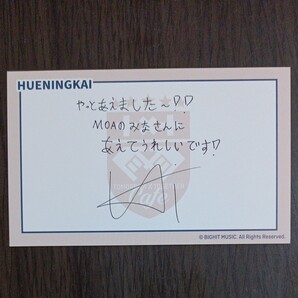 HUENINGKAI
やっとあえました〜!!
MOAのみなさんに
あえてうれしいです!
© BIGHIT MUSIC. All Rights Reserved.